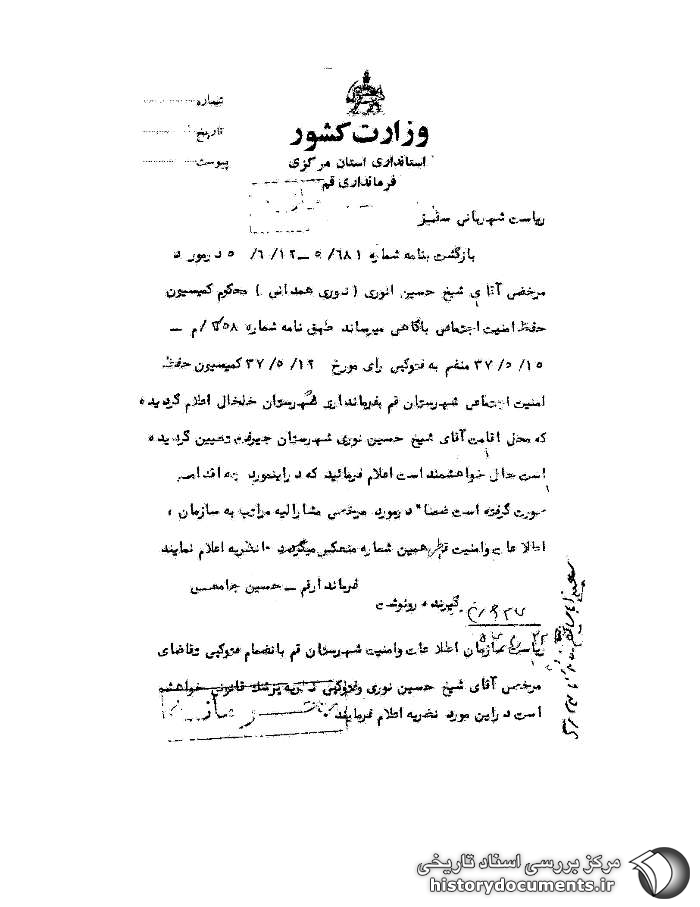 شماره
تاریخ
پیوست
وزارت کشور
استانداری استان مرکزی
فرمانداری قم
ریاست شهربانی سقز
بازگشت بنامه شماره ۵/۶۸۱ – ۵/۶/۱۲ درمورد
مرخصی آقای شیخ حسین انوری (نوری همدانی) محکوم کمیسیون
حفظ امنیت اجتماعی باگاهی میرساند طبق نامه شماره /م –
۳۷/۵/۱۵ منضم به فتوکپی رای مورخ ۳۷/۵/۱۲ کمیسیون حفظ
امنیت اجتماعی شهرستان قم بفرمانداری شهرستان خلخال اعلام گردیده
که محل اقامت آقای شیخ حسین نوری شهرستان جیرفت تعیین گردیده
است حال خواهشمند است اعلام فرمائید که دراینمورد چه اقدامی
صورت گرفته است ضمنا" درمورد مرخصی مشارالیه مراتب به سازمان
اطلاعات وامنیت قم همین شماره منعکس میگردد تانظریه اعلام نمایند
فرماندار قم – حسین جامعی
گیرنده رونوشت
ریاست سازمان اطلاعات وامنیت شهرستان قم بانضمام فتوکپی تقاضای
مرخصی آقای شیخ حسین نوری وفتوکپی نظریه پزشک قانونی خواهشمند
است دراین مورد نظریه اعلام فرمایند
مرکز بررسی اسناد تاریخی
historydocuments.ir